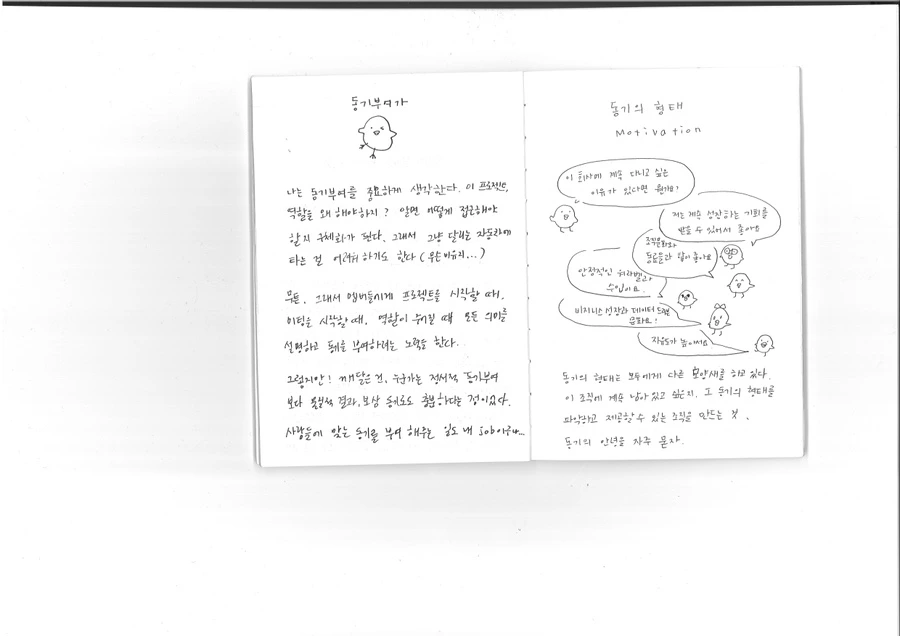 동기부여가
나는 동기부여를 중요하게 생각한다. 이 프로젝트,
역할을 왜 해야하지? 알면 어떻게 접근해야
할지 구체화가 된다. 그래서 그냥 달리는 자동차에
타는 걸 어려워 하기도 한다 (무슨비유지...)
무튼, 그래서 멤버들에게 프로젝트를 시작할 때,
미팅을 시작할 때, 역할이 주어질 때 모든 의미를
설명하고 동기를 부여하려는 노력을 한다.
그렇지만! 깨달은 건, 누군가는 정서적 동기부여
보다 물질적 결과, 보상 동기로도 충분하다는 것이었다.
사람들에 맞는 동기를 부여 해주는 일도 내 job이구나...
동기의 형태
Motivation
이 회사에 계속 다니고 싶은
이유가 있다면 뭔가요?
저는 계속 성장하는 기회를
받을 수 있어서 좋아요
조직문화와
동료들과 일이 좋아요
안정적인 워라밸과,
수입이요.
비지니스 성장과 데이터 드리븐
문화요!
자율도가 높아서요
동기의 형태는 모두에게 다른 모양새를 하고 있다.
이 조직에 계속 남아 있고 싶은지, 그 동기의 형태를
파악하고 제공할 수 있는 조직을 만드는 것.
동기의 안녕을 자주 묻자.